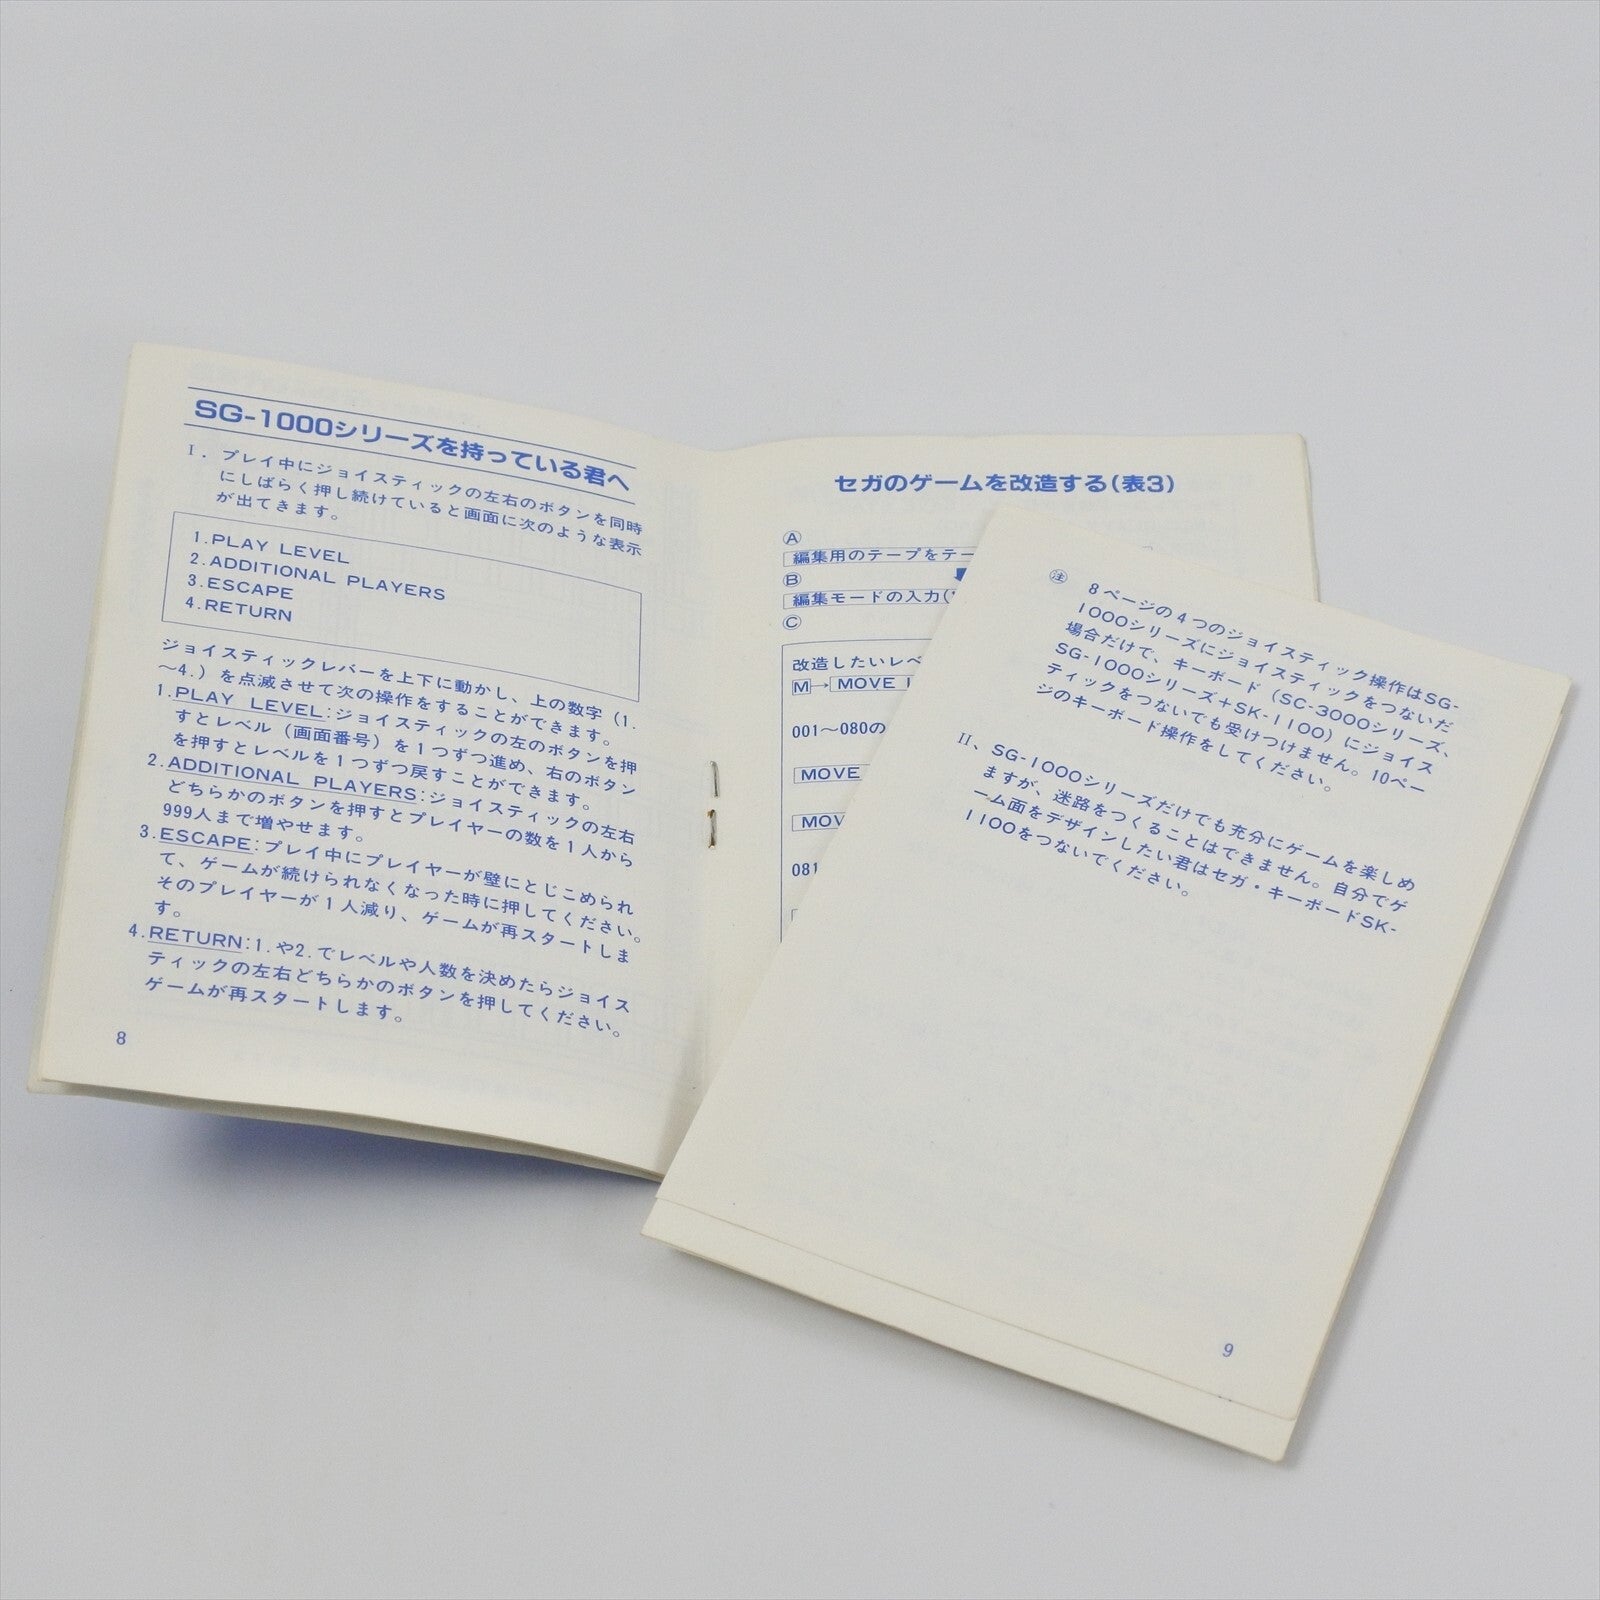 SG-1000シリーズを持っている君へ
I. プレイ中にジョイスティックの左右のボタンを同時
にしばらく押し続けていると画面に次のような表示
が出てきます。
1.PLAY LEVEL
2.ADDITIONAL PLAYERS
3.ESCAPE
4.RETURN
ジョイスティックレバーを上下に動かし、上の数字（1.
〜4.）を点滅させて次の操作をすることができます。
1.PLAY LEVEL:ジョイスティックの左のボタンを押
すとレベル（画面番号）を1つずつ進め、右のボタン
を押すとレベルを1つずつ戻すことができます。
2.ADDITIONAL PLAYERS:ジョイスティックの左右
どちらかのボタンを押すとプレイヤーの数を1人から
999人まで増やせます。
3.ESCAPE:プレイ中にプレイヤーが壁にとじこめられ
て、ゲームが続けられなくなった時に押してください。
そのプレイヤーが1人減り、ゲームが再スタートしま
す。
4.RETURN:1.や2.でレベルや人数を決めたらジョイス
ティックの左右どちらかのボタンを押してください。
ゲームが再スタートします。
8
セガのゲームを改造する(表3)
Ⓐ
編集用のテープをテー
Ⓑ
編集モードの入力(
Ⓒ
改造したいレベ
M→MOVE
001〜080の
MOVE
MOV
081
㊟ 8ページの4つのジョイスティック操作はSG-
1000シリーズにジョイスティックをつないだ
場合だけで、キーボード（SC-3000シリーズ、
SG-1000シリーズ+SK-1100）にジョイス
ティックをつないでも受けつけません。10ペー
ジのキーボード操作をしてください。
II、SG-1000シリーズだけでも充分にゲームを楽しめ
ますが、迷路をつくることはできません。自分でゲ
ーム面をデザインしたい君はセガ・キーボードSK-
1100をつないでください。
9